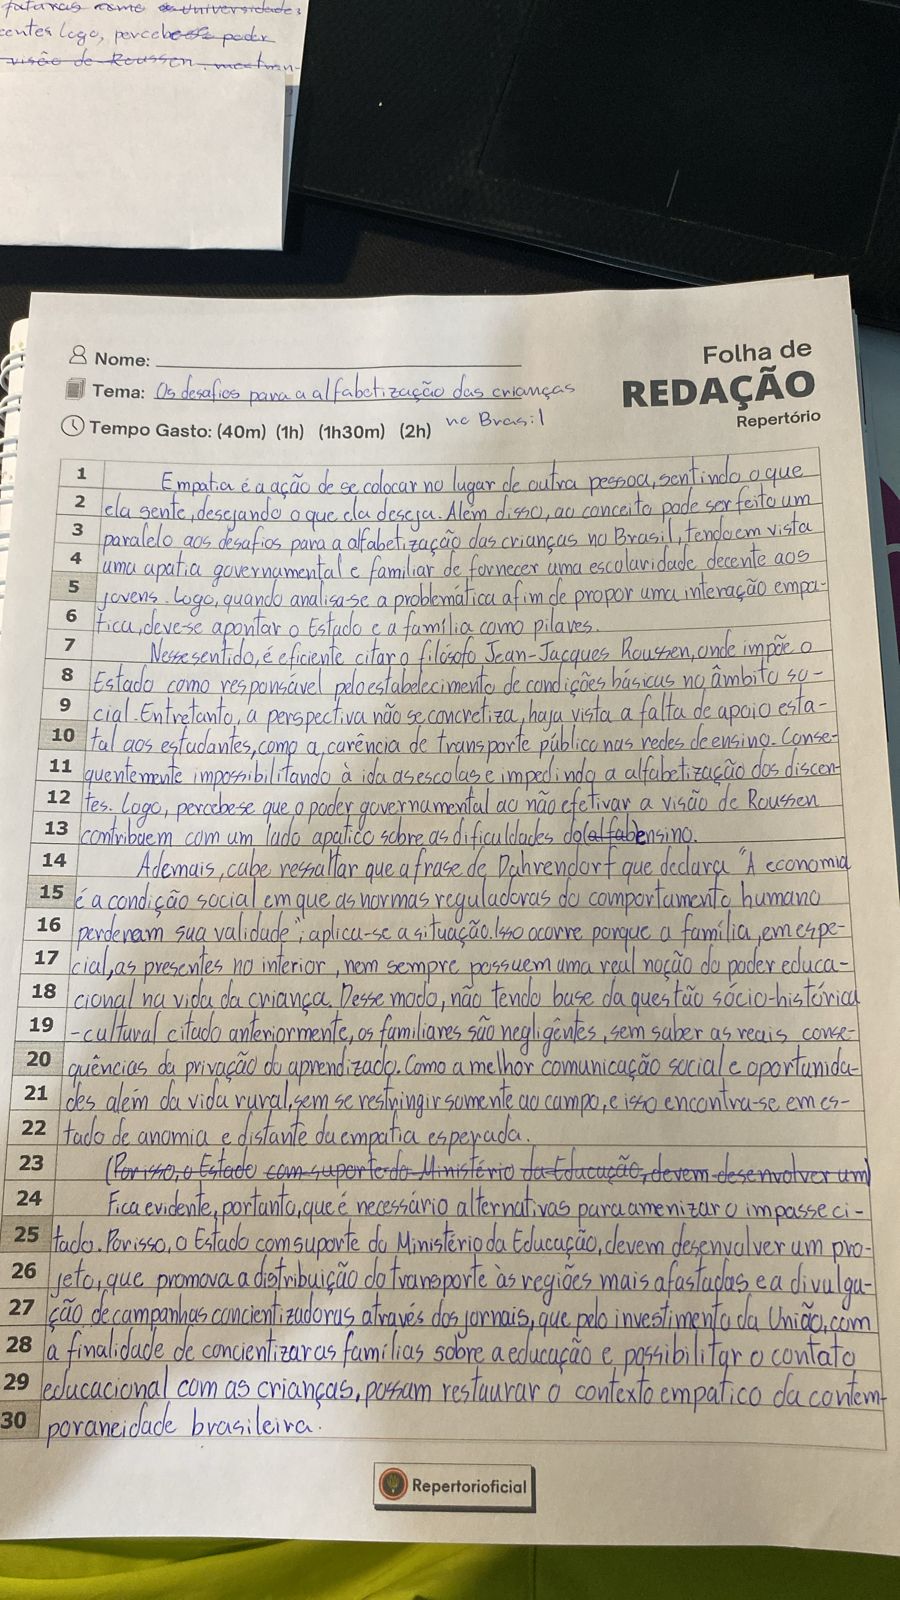 futuras como as universidades
centes logo, percebese poder
visão de Roussen, mostran-
Nome:
Folha de
REDAÇÃO
Repertório
Tema: Os desafios para a alfabetização das crianças
no Brasil
Tempo Gasto: (40m) (1h) (1h30m) (2h)
1 Empatia é a ação de se colocar no lugar de outra pessoa, sentindo o que
2 ela sente, desejando o que ela deseja. Além disso, ao conceito pode ser feito um
3 paralelo aos desafios para a alfabetização das crianças no Brasil, tendo em vista
4 uma apatia governamental e familiar de fornecer uma escolaridade decente aos
5 jovens. Logo, quando analisa-se a problemática afim de propor uma interação empa-
6 tica, deve-se apontar o Estado e a família como pilares.
7 Nesse sentido, é eficiente citar o filósofo Jean-Jacques Roussen, onde impõe o
8 Estado como responsável pelo estabelecimento de condições básicas no âmbito so-
9 cial. Entretanto, a perspectiva não se concretiza, haja vista a falta de apoio esta-
10 tal aos estudantes, como a carência de transporte público nas redes de ensino. Conse-
11 quentemente impossibilitando à ida as escolas e impedindo a alfabetização dos discen-
12 tes. Logo, percebese que o poder governamental ao não efetivar a visão de Roussen
13 contribuem com um lado apatico sobre as dificuldades do(alfab)ensino.
14 Ademais, cabe ressaltar que a frase de Dahrendorf que declara "A economia
15 é a condição social em que as normas reguladoras do comportamento humano
16 perderam sua validade", aplica-se a situação. Isso ocorre porque a família, em espe-
17 cial, as presentes no interior, nem sempre possuem uma real noção do poder educa-
18 cional na vida da criança. Desse modo, não tendo base da questão sócio-histórica
19 -cultural citado anteriormente, os familiares são negligêntes, sem saber as reais conse-
20 quências da privação do aprendizado. Como a melhor comunicação social e oportunida-
21 des além da vida rural, sem se restringir somente ao campo, e isso encontra-se em es-
22 tado de anomia e distante da empatia esperada.
23 (Por isso, o Estado com suporte do Ministério da Educação, devem desenvolver um)
24 Fica evidente, portanto, que é necessário alternativas para amenizar o impasse ci-
25 tado. Por isso, o Estado com suporte do Ministério da Educação, devem desenvolver um pro-
26 jeto, que promova a distribuição do transporte às regiões mais afastadas e a divulga-
27 ção de campanhas concientizadoras através dos jornais, que pelo investimento da União, com
28 a finalidade de concientizar as famílias sobre a educação e possibilitar o contato
29 educacional com as crianças, possam restaurar o contexto empatico da contem-
30 poraneidade brasileira.
Repertorioficial